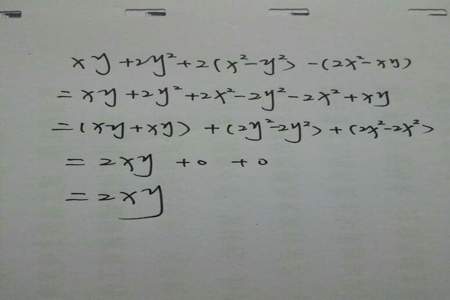 xy+2y²+2(x²-y²)-(2x²-xy)
=xy+2y²+2x²-2y²-2x²+xy
=(xy+xy)+(2y²-2y²)+(2x²-2x²)
=2xy+0+0
=2xy